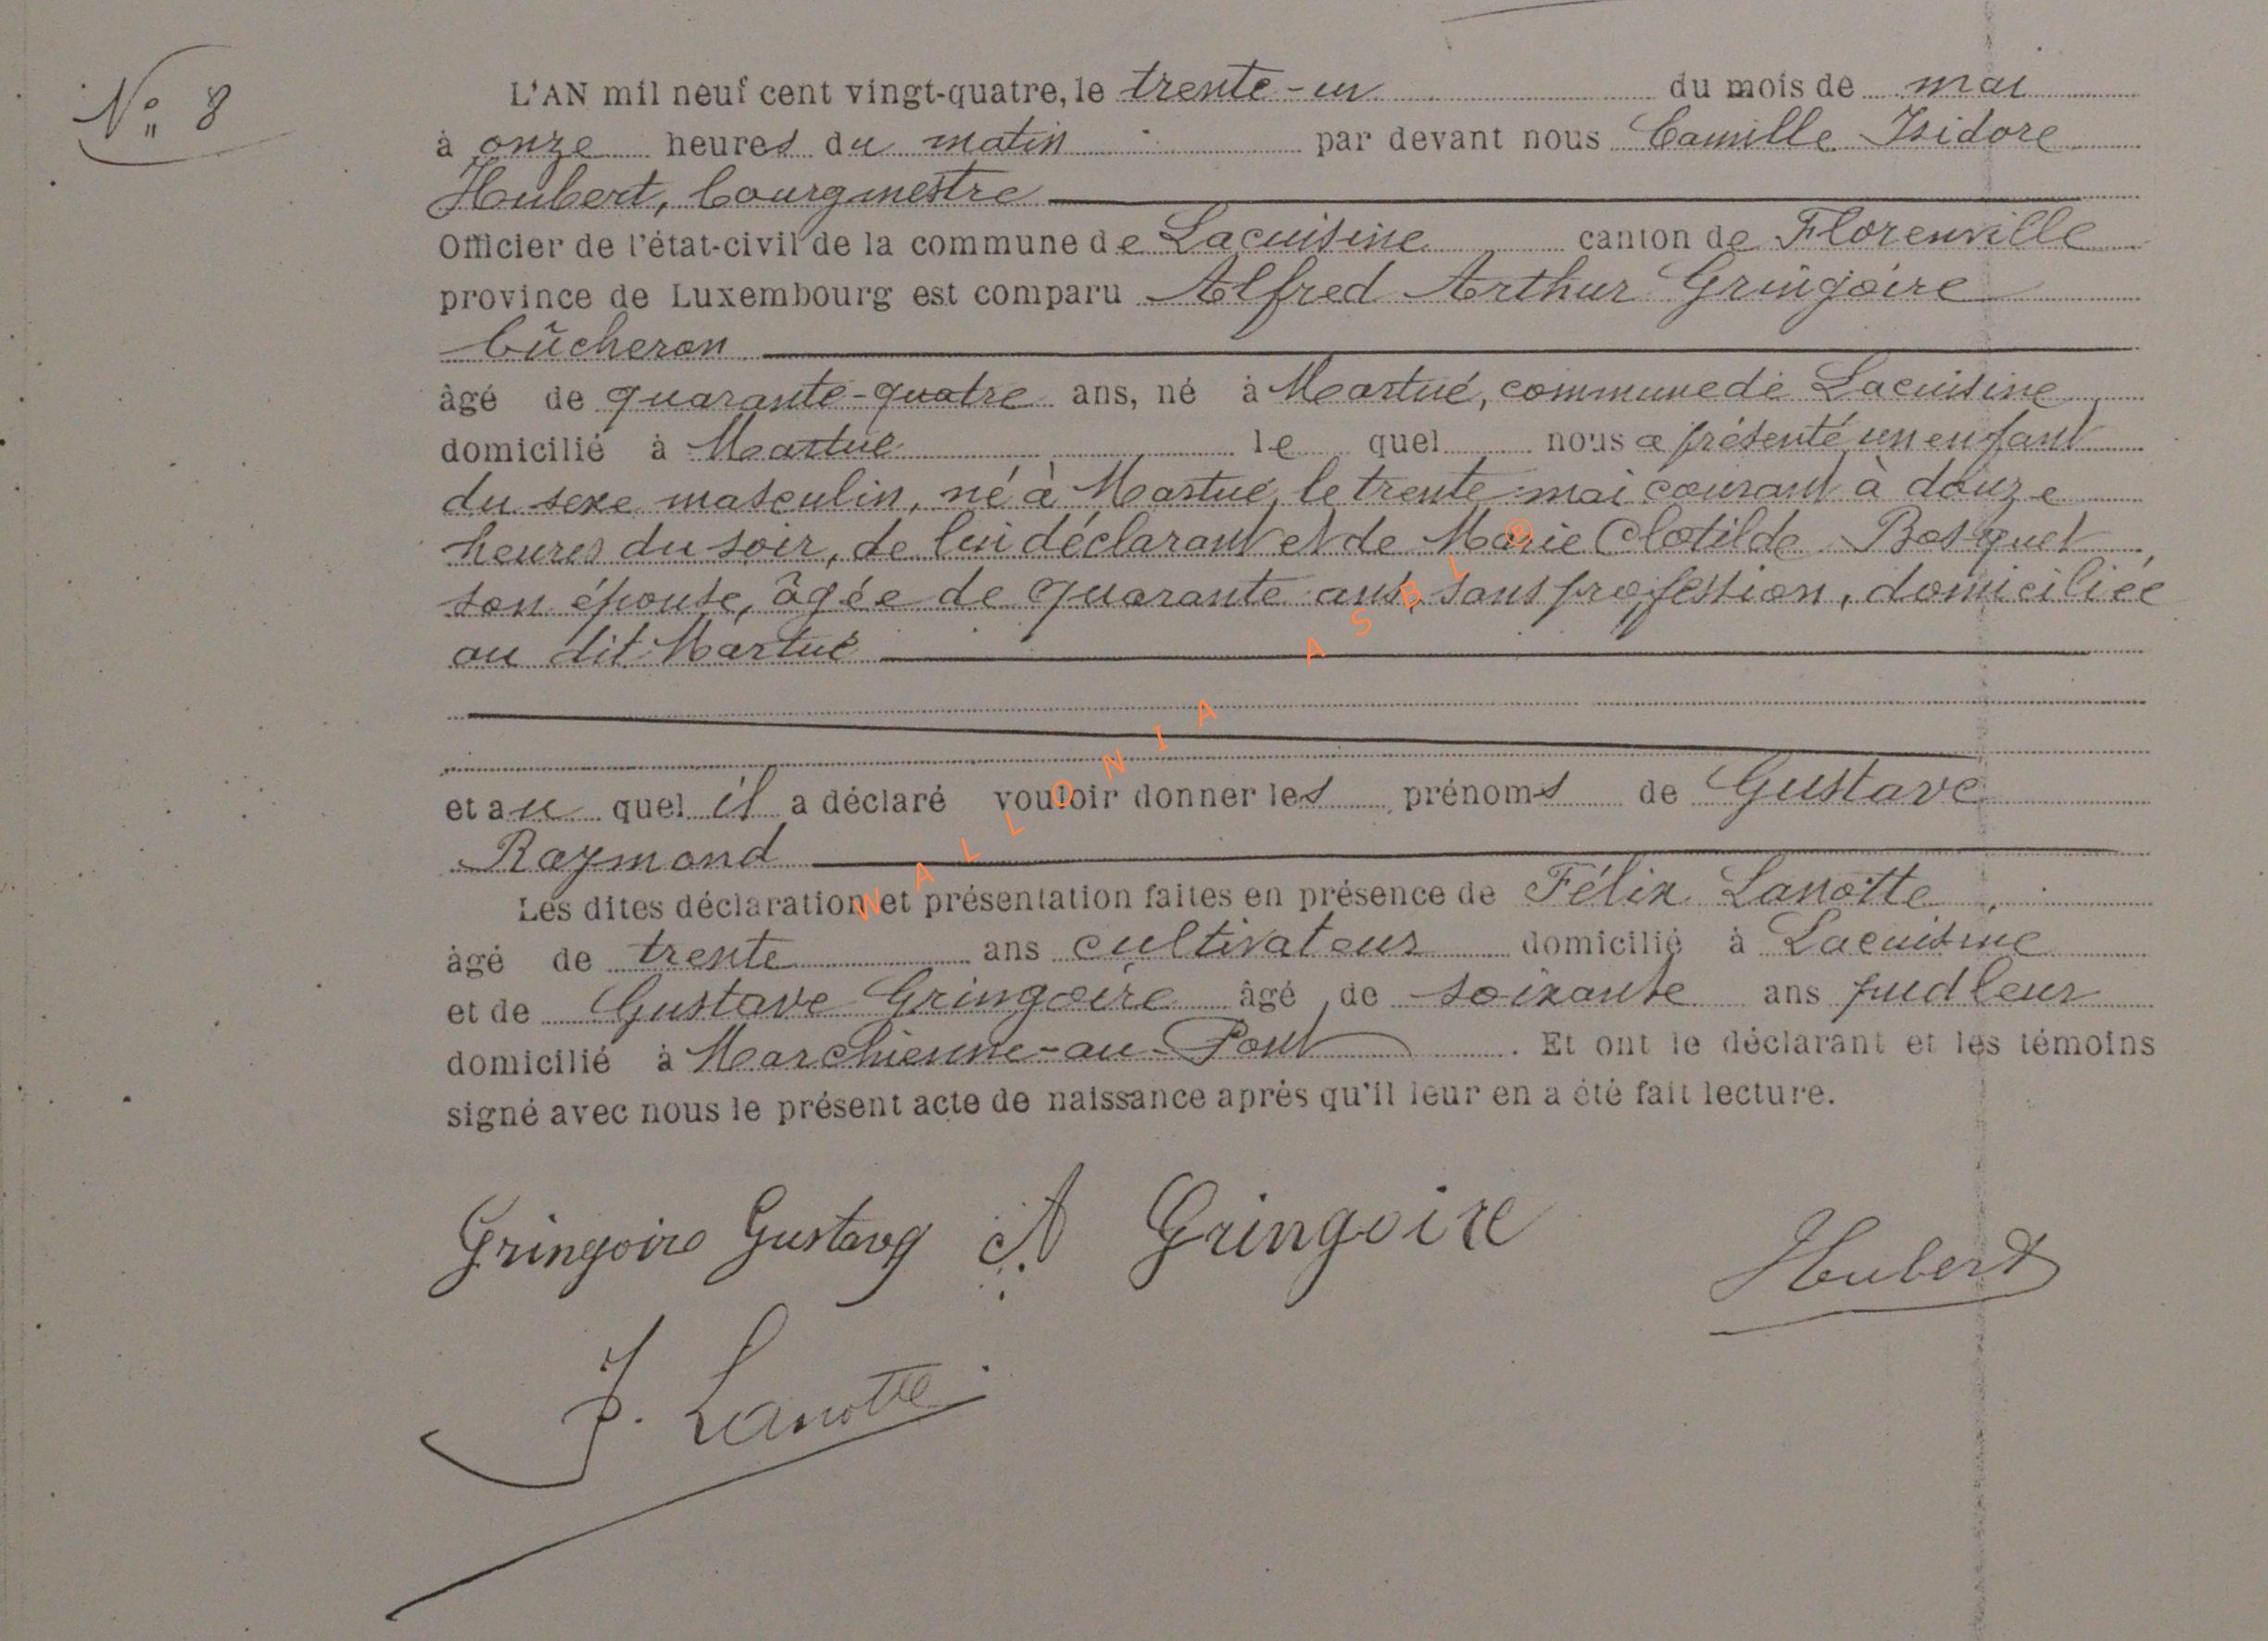 N° 8
L'AN mil neuf cent vingt-quatre, le trente-un du mois de mai
à onze heures du matin par devant nous Camille Isidore
Hubert, bourgmestre
Officier de l'état-civil de la commune de Lacuisine canton de Florenville
province de Luxembourg est comparu Alfred Arthur Gringoire
bûcheron
âgé de quarante-quatre ans, né à Martué, commune de Lacuisine
domicilié à Martué le quel nous a présenté un enfant
du sexe masculin, né à Martué, le trente mai courant à douze
heures du soir, de lui déclarant et de Marie Clotilde Bosquet
son épouse, âgée de quarante ans, sans profession, domiciliée
au dit Martué
et au quel il a déclaré vouloir donner les prénoms de Gustave
Raymond
Les dites déclaration et présentation faites en présence de Félix Lanotte
âgé de trente ans cultivateur domicilié à Lacuisine
et de Gustave Gringoire âgé de soixante ans pudleur
domicilié à Marchienne-au-Pont. Et ont le déclarant et les témoins
signé avec nous le présent acte de naissance après qu'il leur en a été fait lecture.
Gringoire Gustave A Gringoire
Hubert
F. Lanotte
WALLONIA ASBL ®